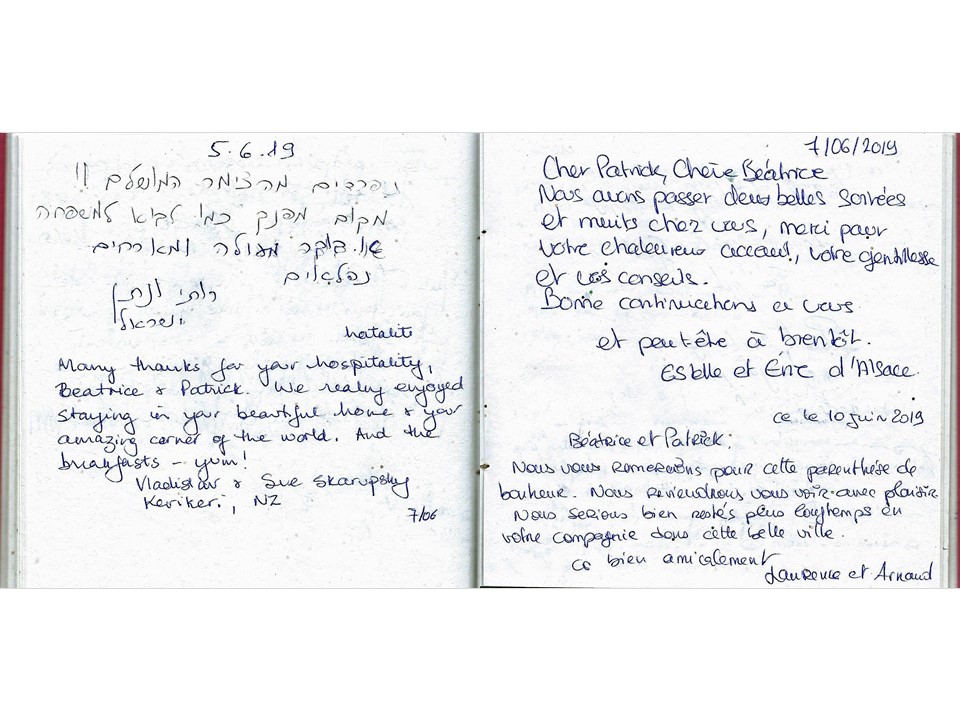 5.6.19
נפרדים מהצימר המושלם !!
מקום מפנק כמו לבוא למשפחה
ארוחת בוקר מעולה ומארחים
נפלאים
רותי ונתן
ישראל
natalit
Many thanks for your hospitality,
Beatrice & Patrick. We really enjoyed
staying in your beautiful home & your
amazing corner of the world. And the
breakfasts – yum!
Vladislav & Sue Skarupsky
Kerikeri, NZ
7/06
7/06/2019
Cher Patrick, Chère Béatrice
Nous avons passer deux belles soirées
et nuits chez vous, merci pour
votre chaleureux accueil, votre gentillesse
et vos conseils.
Bonne continuations a vous
et peut être à bientôt.
Estelle et Eric d'Alsace.
ce le 10 juin 2019
Béatrice et Patrick:
Nous vous remercions pour cette parenthèse de
bonheur. Nous reviendrons vous voir avec plaisir
Nous serions bien restés plus longtemps en
votre compagnie dans cette belle ville.
bien amicalement
Laurence et Arnaud